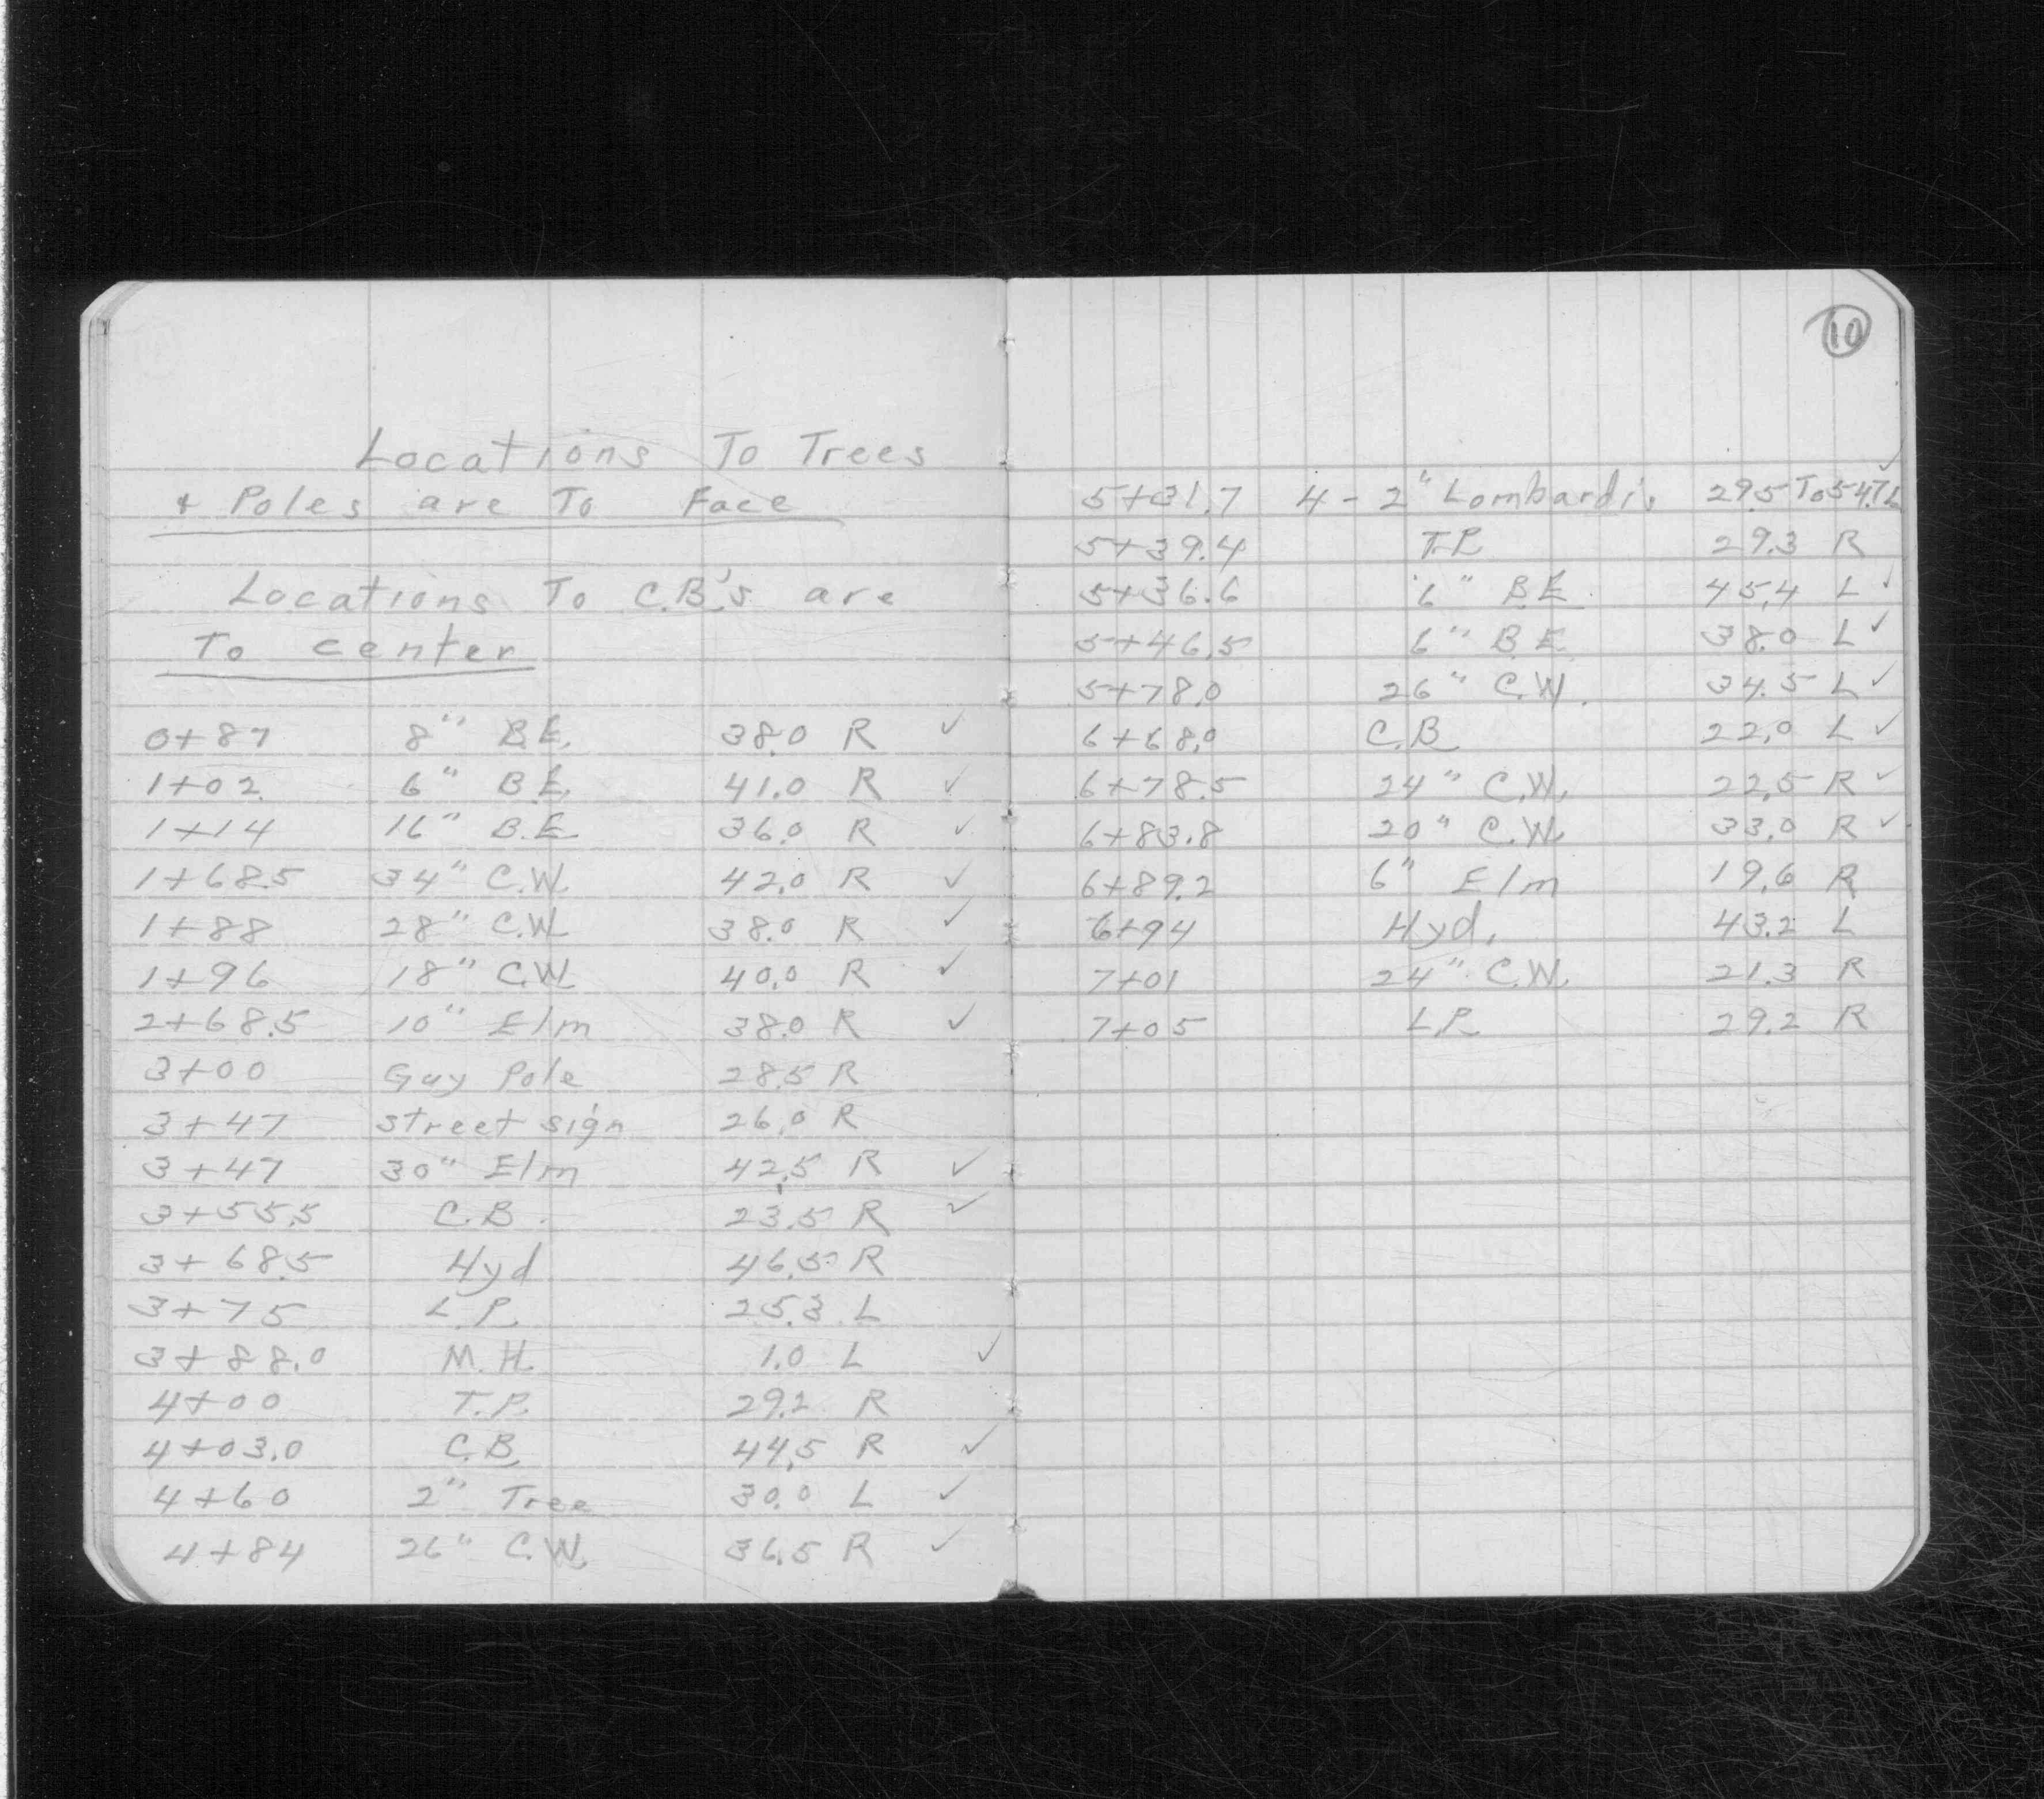 Locations To Trees
& Poles are To Face
Locations To C.B.'s are
To center
0+87 8" B.E. 38.0 R ✓
1+02 6" B.E. 41.0 R ✓
1+14 16" B.E. 36.0 R ✓
1+68.5 34" C.W. 42.0 R ✓
1+88 28" C.W. 38.0 R ✓
1+96 18" C.W. 40.0 R ✓
2+68.5 10" Elm 38.0 R ✓
3+00 Guy Pole 28.5 R
3+47 street sign 26.0 R
3+47 30" Elm 42.5 R ✓
3+55.5 C.B. 23.5 R ✓
3+68.5 Hyd 46.5 R
3+75 L.P. 25.3 L
3+88.0 M.H. 1.0 L ✓
4+00 T.P. 29.2 R
4+03.0 C.B. 44.5 R ✓
4+60 2" Tree 30.0 L ✓
4+84 26" C.W. 36.5 R ✓
10
5+31.7 4-2" Lombardi's 29.5 To 54.7 L ✓
5+39.4 T.P. 29.3 R
5+36.6 6" B.E. 45.4 L ✓
5+46.5 6" B.E. 38.0 L ✓
5+78.0 26" C.W. 34.5 L ✓
6+68.0 C.B. 22.0 L ✓
6+78.5 24" C.W. 22.5 R ✓
6+83.8 20" C.W. 33.0 R ✓
6+89.2 6" Elm 19.6 R
6+94 Hyd. 43.2 L
7+01 24" C.W. 21.3 R
7+05 L.P. 29.2 R